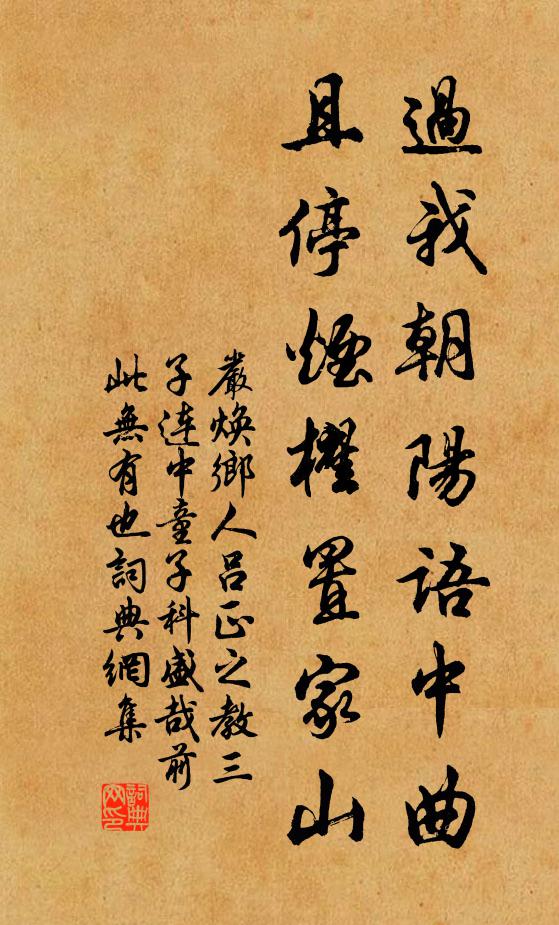 過我朝陽語中曲
且停煙櫂置家山
嚴煥鄉人呂正之教三
子連中童子科盛哉前
此無有也詞典網集
詞典
网印